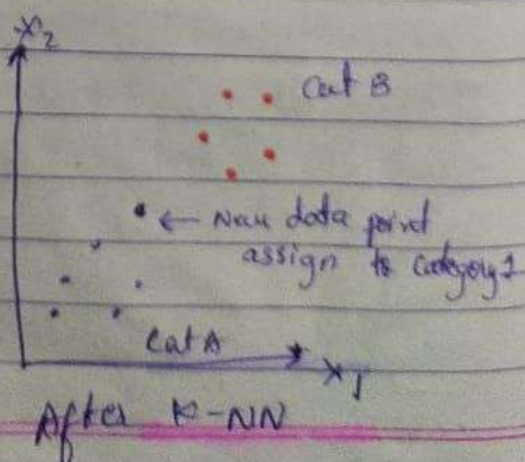 X2
Cat B
← New data point
assign to Category 1
Cat A
X1
After K-NN